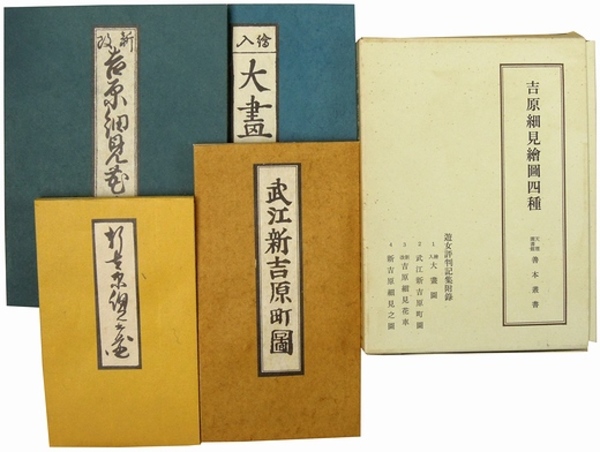 新改
吉原細見花
繪入
大畫
武江新吉原町圖
新吉原細見之圖
吉原細見繪圖四種
天理圖書館 善本叢書
遊女評判記集附錄
1 繪入 大畫圖
2 武江新吉原町圖
3 新改 吉原細見花車
4 新吉原細見之圖